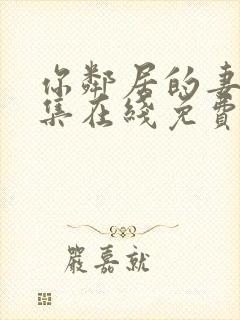 你鄰居的妻
集在綫免費
嚴嘉就